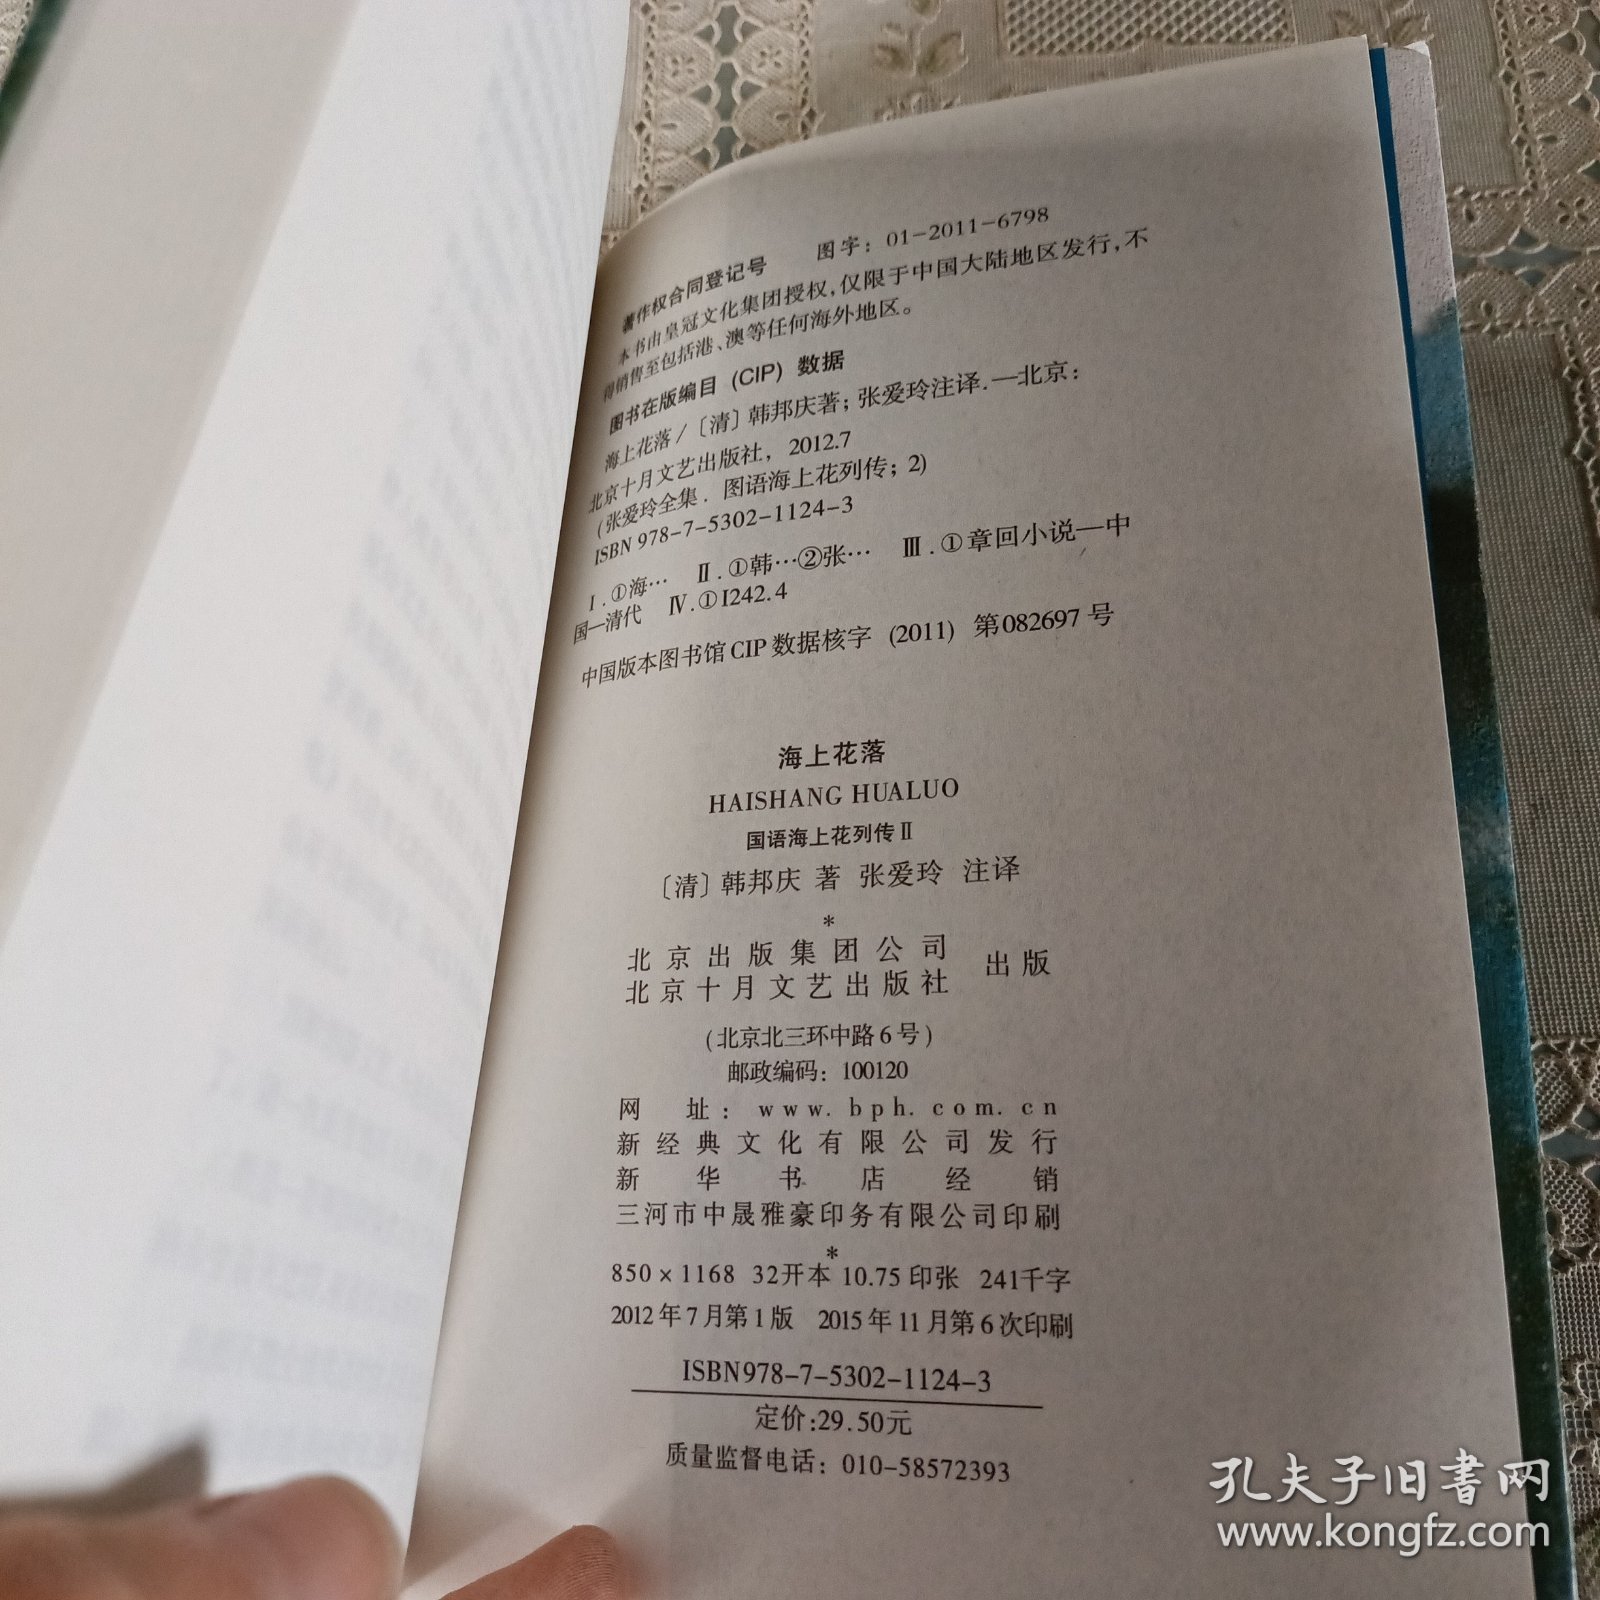 著作权合同登记号 图字：01-2011-6798
本书由皇冠文化集团授权，仅限于中国大陆地区发行，不
得销售至包括港、澳等任何海外地区。
图书在版编目（CIP）数据
海上花落／〔清〕韩邦庆著；张爱玲注译.—北京：
北京十月文艺出版社，2012.7
（张爱玲全集．图语海上花列传；2）
ISBN 978-7-5302-1124-3
Ⅰ.①海… Ⅱ.①韩…②张… Ⅲ.①章回小说—中
国—清代 Ⅳ.①I242.4
中国版本图书馆CIP数据核字（2011）第082697号
海上花落
HAISHANG HUALUO
国语海上花列传Ⅱ
〔清〕韩邦庆 著 张爱玲 注译
*
北京出版集团公司
北京十月文艺出版社 出版
（北京北三环中路6号）
邮政编码：100120
网 址：www.bph.com.cn
新经典文化有限公司发行
新华书店经销
三河市中晟雅豪印务有限公司印刷
*
850×1168 32开本 10.75印张 241千字
2012年7月第1版 2015年11月第6次印刷
ISBN978-7-5302-1124-3
定价：29.50元
质量监督电话：010-58572393
孔夫子旧书网
www.kongfz.com